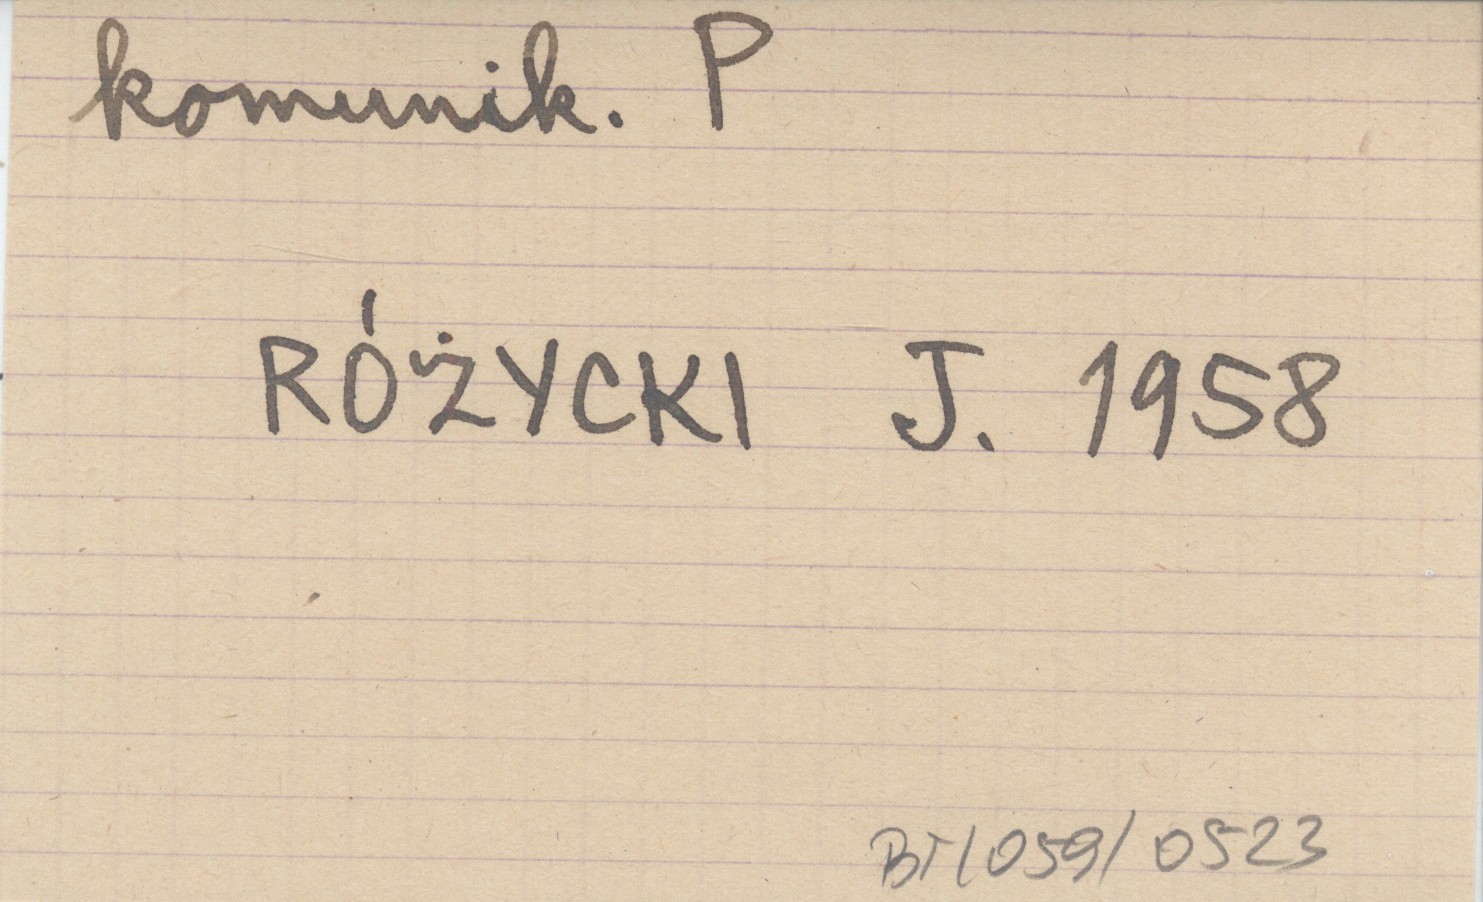 komunik. P
RÓŻYCKI J. 1958
BT/059/0523